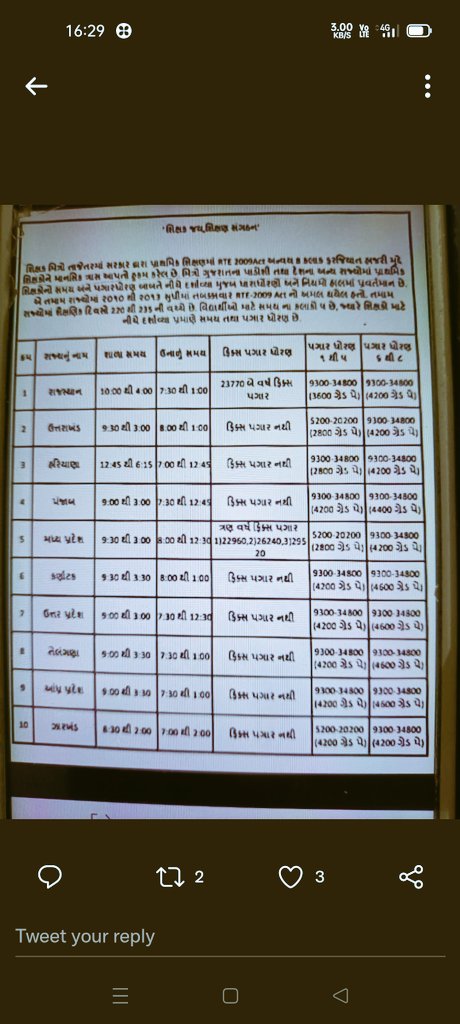 16:29
3.00 KB/S Vo LTE 4G
'શિક્ષક જય,શિક્ષણ સંગઠન'
શિક્ષક મિત્રો તાજેતરમાં સરકાર દ્વારા પ્રાથમિક શિક્ષણમાં RTE 2009Act અન્વયે ૮ કલાક ફરજિયાત હાજરી મુદ્દે
શિક્ષકોને માનસિક ત્રાસ આપતો હુકમ કરેલ છે. મિત્રો ગુજરાતના પાડોશી તથા દેશના અન્ય રાજ્યોમાં પ્રાથમિક
શિક્ષકોનો સમય અને પગારધોરણ બાબતે નીચે દર્શાવ્યા મુજબ ધારાધોરણો અને નિયમો હાલમાં પ્રવર્તમાન છે.
એ તમામ રાજ્યોમાં ૨૦૧૦ થી ૨૦૧૩ સુધીમાં તબક્કાવાર RTE-2009 Act નો અમલ થયેલ હતો. તમામ
રાજ્યોમાં શૈક્ષણિક દિવસો 220 થી 235 ની વચ્ચે છે. વિદ્યાર્થીઓ માટે સમય ના કલાકો ૫ છે, જ્યારે શિક્ષકો માટે
નીચે દર્શાવ્યા પ્રમાણે સમય તથા પગાર ધોરણ છે.
ક્રમ રાજ્યનું નામ શાળા સમય ઉનાળું સમય ફિક્સ પગાર ધોરણ પગાર ધોરણ ૧ થી ૫ પગાર ધોરણ ૬ થી ૮
1 રાજસ્થાન 10:00 થી 4:00 7:30 થી 1:00 23770 બે વર્ષ ફિક્સ પગાર 9300-34800 (3600 ગ્રેડ પે) 9300-34800 (4200 ગ્રેડ પે)
2 ઉત્તરાખંડ 9:30 થી 3:00 8:00 થી 1:00 ફિક્સ પગાર નથી 5200-20200 (2800 ગ્રેડ પે) 9300-34800 (4200 ગ્રેડ પે)
3 હરિયાણા 12:45 થી 6:15 7:00 થી 12:45 ફિક્સ પગાર નથી 9300-34800 (2800 ગ્રેડ પે) 9300-34800 (4200 ગ્રેડ પે)
4 પંજાબ 9:00 થી 3:00 7:30 થી 12:45 ફિક્સ પગાર નથી 9300-34800 (4200 ગ્રેડ પે) 9300-34800 (4400 ગ્રેડ પે)
5 મધ્ય પ્રદેશ 9:30 થી 3:00 8:00 થી 12:30 ત્રણ વર્ષ ફિક્સ પગાર 1)22960,2)26240,3)29520 5200-20200 (2800 ગ્રેડ પે) 9300-34800 (4200 ગ્રેડ પે)
6 કર્ણાટક 9:30 થી 3:30 8:00 થી 1:00 ફિક્સ પગાર નથી 9300-34800 (4200 ગ્રેડ પે) 9300-34800 (4600 ગ્રેડ પે)
7 ઉત્તર પ્રદેશ 9:00 થી 3:00 7:30 થી 12:30 ફિક્સ પગાર નથી 9300-34800 (4200 ગ્રેડ પે) 9300-34800 (4600 ગ્રેડ પે)
8 તેલંગણા 9:00 થી 3:30 7:30 થી 1:00 ફિક્સ પગાર નથી 9300-34800 (4200 ગ્રેડ પે) 9300-34800 (4600 ગ્રેડ પે)
9 આંધ્ર પ્રદેશ 9:00 થી 3:30 7:30 થી 1:00 ફિક્સ પગાર નથી 9300-34800 (4200 ગ્રેડ પે) 9300-34800 (4600 ગ્રેડ પે)
10 ઝારખંડ 8:30 થી 2:00 7:00 થી 2:00 ફિક્સ પગાર નથી 5200-20200 (4200 ગ્રેડ પે) 9300-34800 (4200 ગ્રેડ પે)
2 3
Tweet your reply